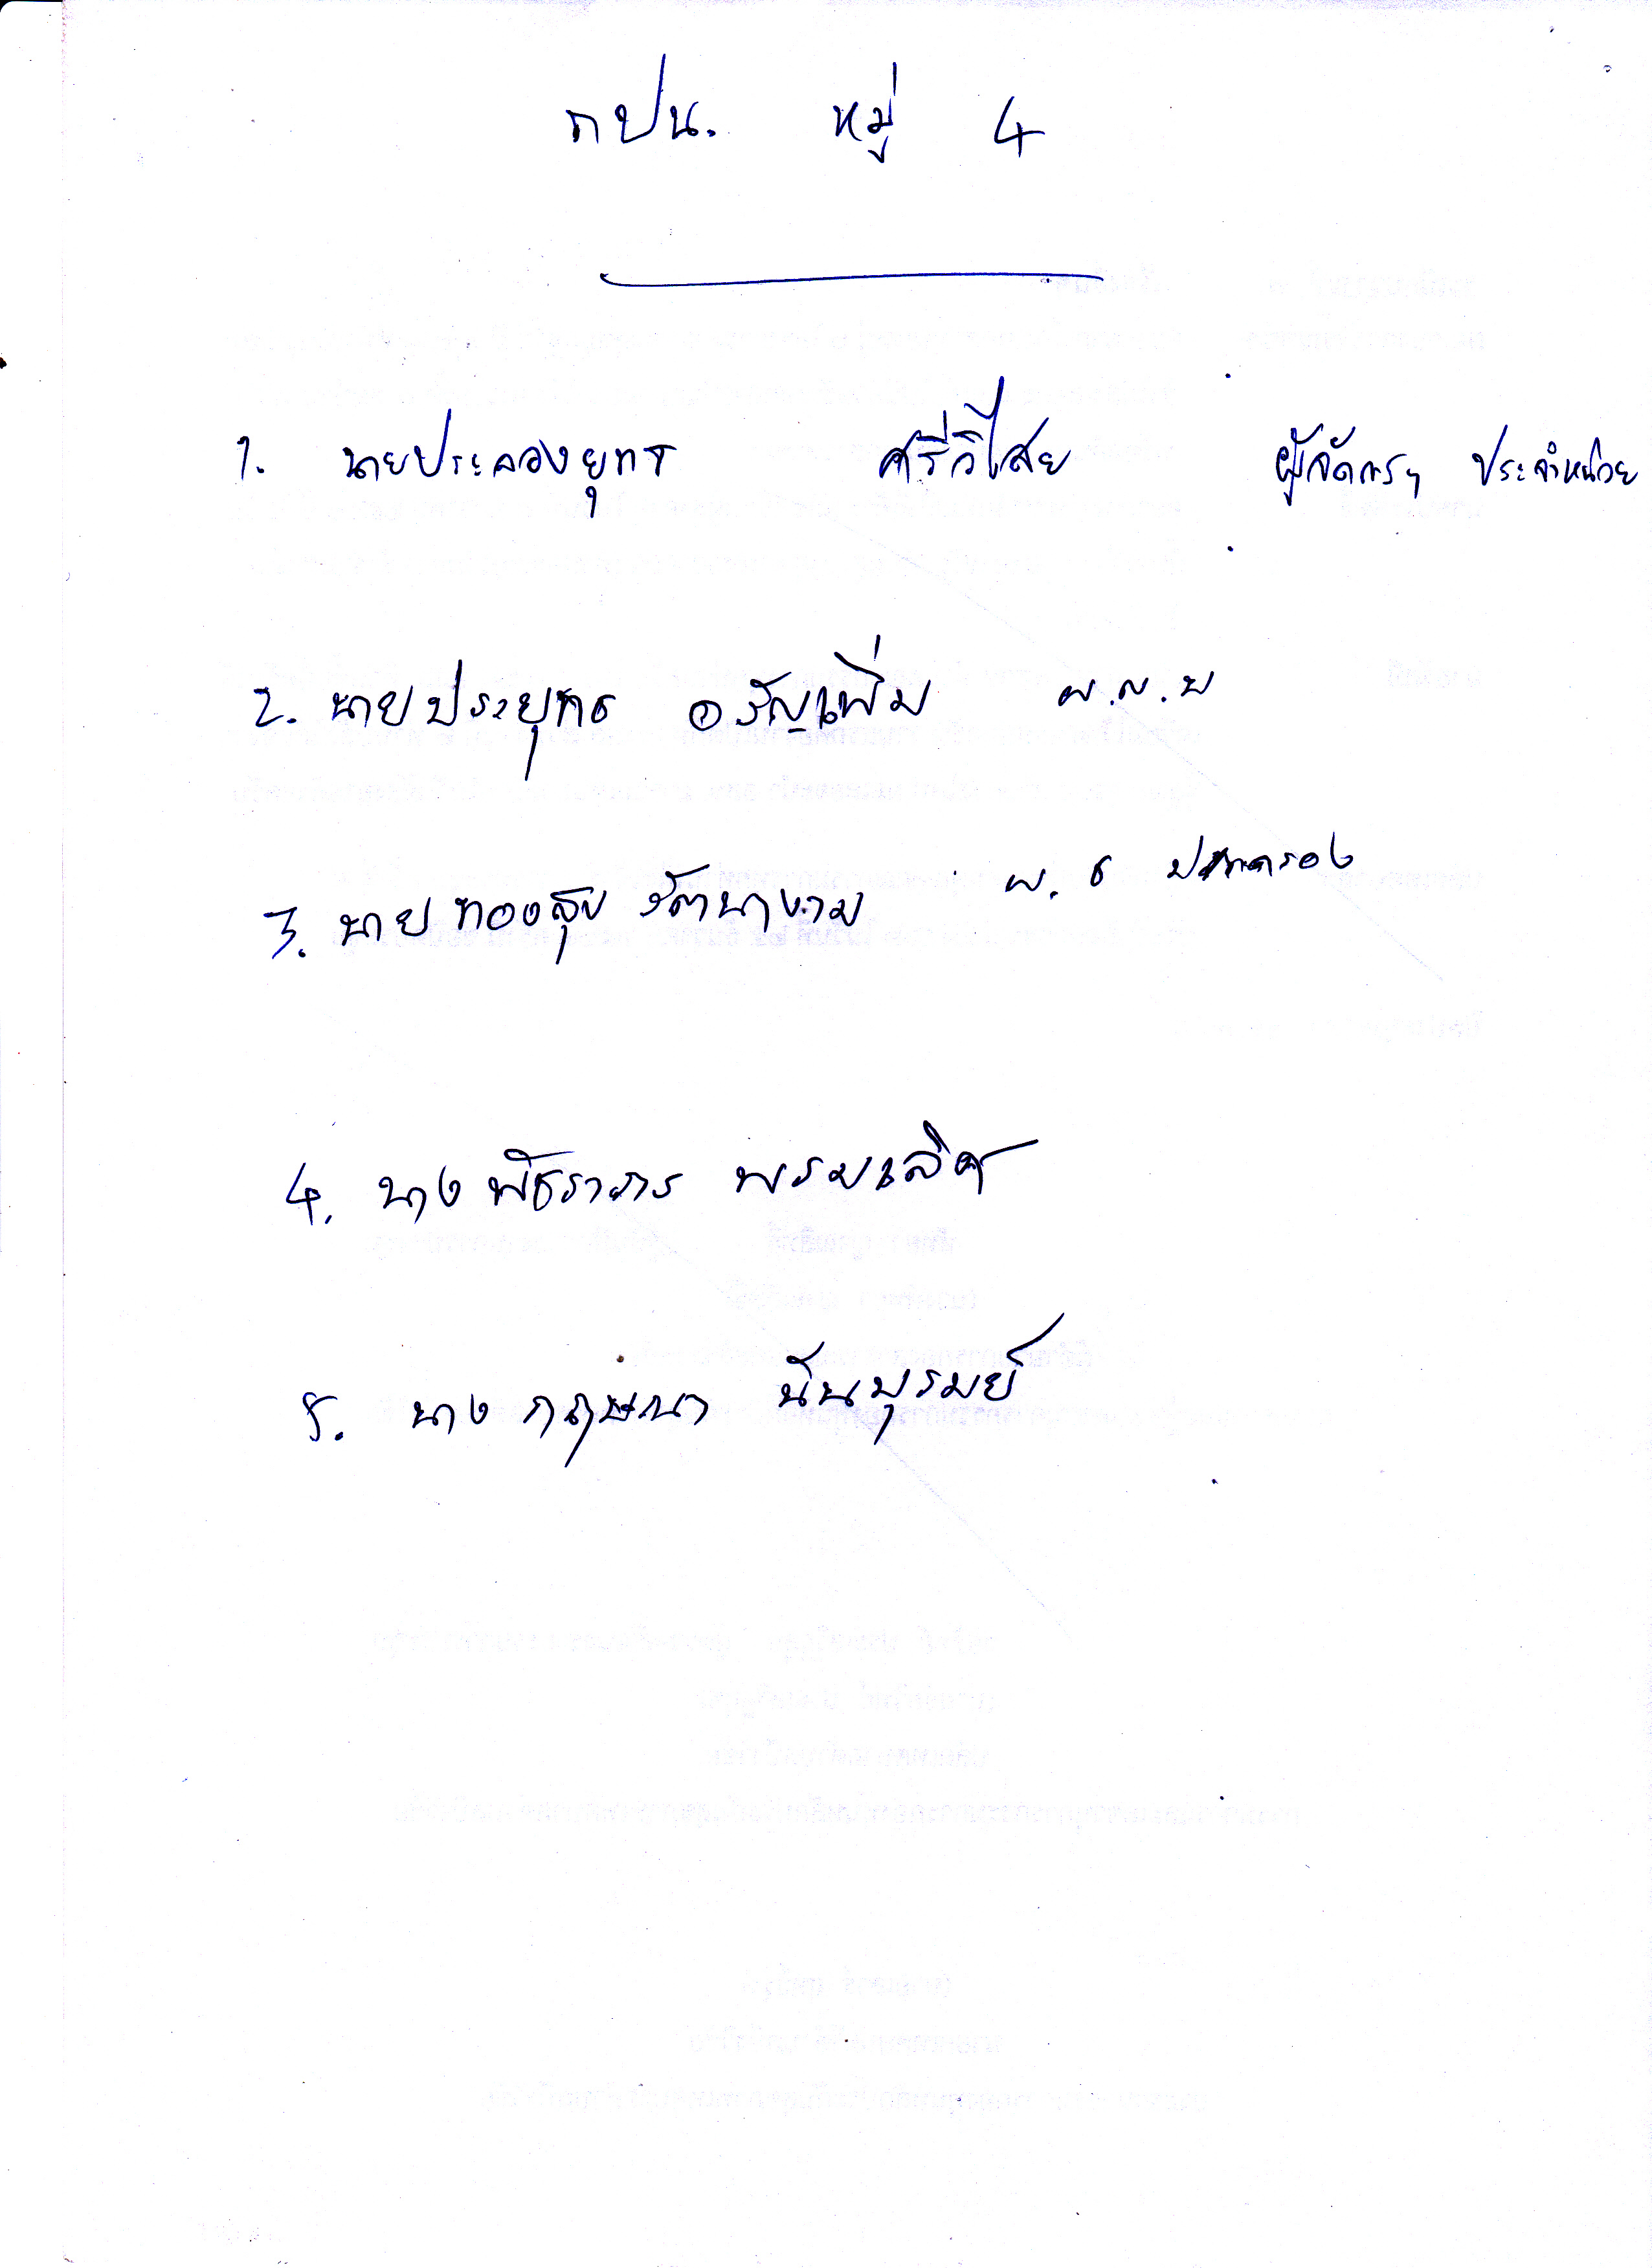 กปน. หมู่ 4
1. นายประลองยุทธ ศรีวิไสย ผู้จัดการฯ ประจำหน่วย
2. นายประยุทธ อรัญเพิ่ม ผ.ญ.บ
3. นาย ทองสุข รัตนางาม ผ.ช ปกครอง
4. นาง พัชราภร พรมเลิศ
5. นาง กฤษณา นันบุรมย์